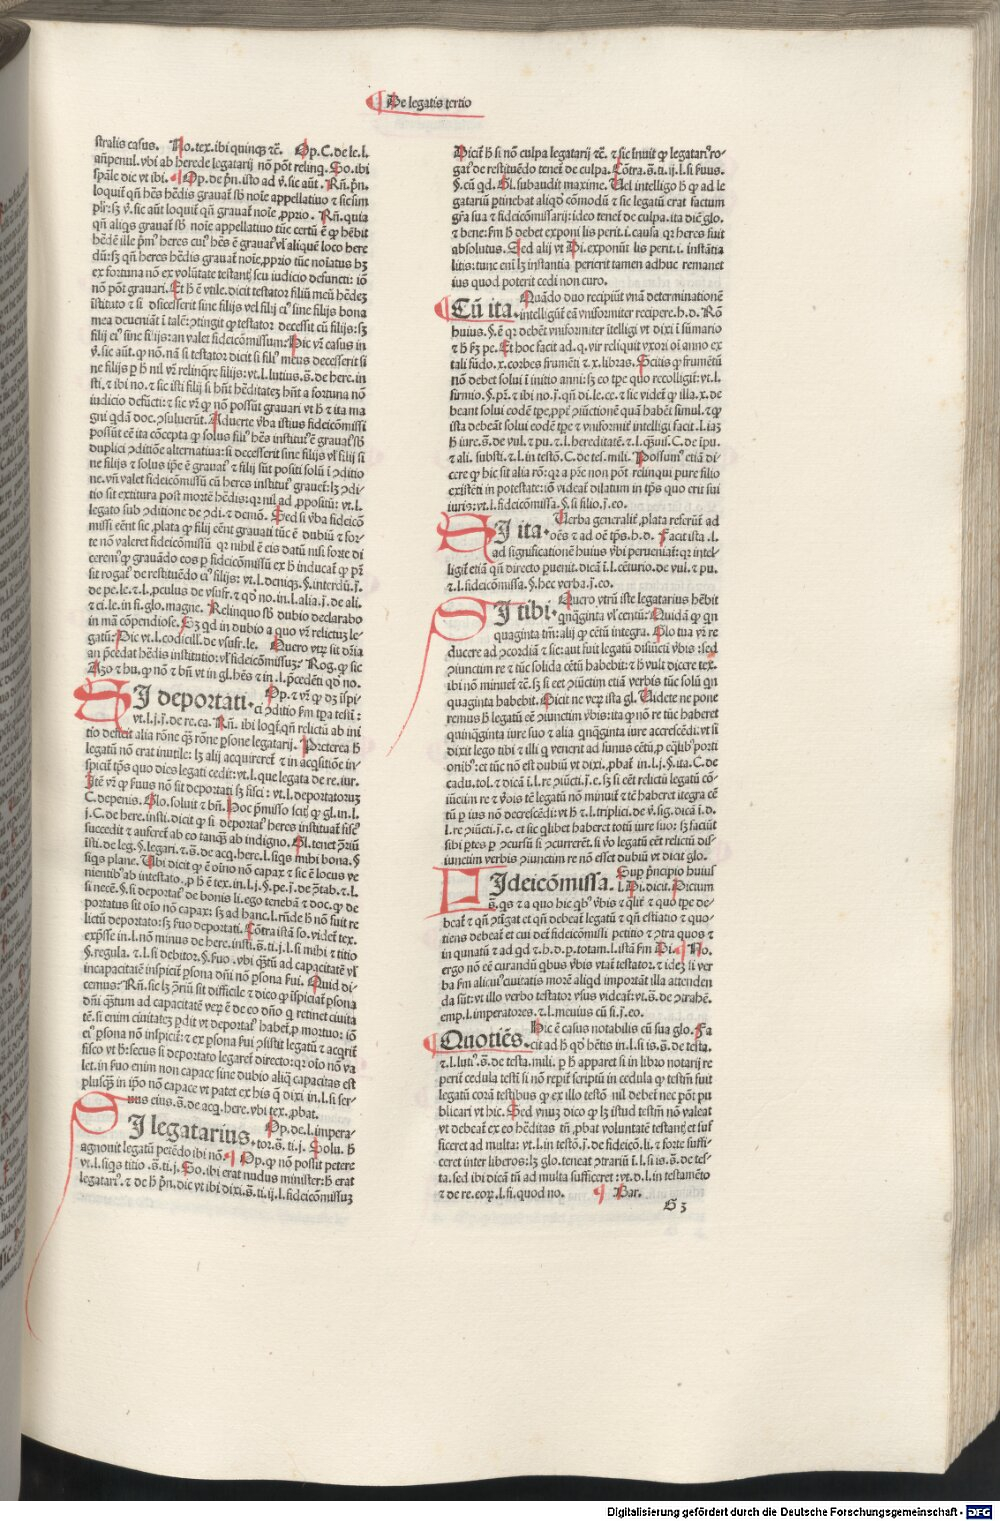 De legatis tertio
stralis casus. No. tex. ibi quinqꝫ ⁊c̃. Op. C. de le. l.
añpenul. vbi ab herede legatarij nõ põt relinq. So. ibi
spãle dic vt ibi. Op. de p̃n. iusto ad v̓. sic aũt. Rñ. p̃n.
loquit̃ qñ hẽs hẽdis grauat̃ sb̃ noĩe appellatiuo ⁊ sic sim
pʳr: sꝫ v̓. sic aũt loquit̃ qñ grauat̃ noĩe ꝓprio. Rñ. quia
qñ aliqs grauat̃ sb̃ noĩe appellatiuo tũc certũ ẽ ꝙ hẽbit
dũ: sꝫ qñ heres hẽdis grauat̃ noĩe ꝓprio tũc noĩatus hꝫ
ex fortuna nõ ex volũtate testant̃ seu iudicio defuncti: iõ
nõ põt grauari. Et h̃ ẽ vtile. dicit testator filiũ meũ hẽdeꝫ
ĩstituto ⁊ si decesserit sine filijs vel filij eiꝰ sine filijs bona
mea deueniãt ĩ talẽ: ↄtingit ꝙ testator decessit cũ filijs: sꝫ
filij eiꝰ sine filijs: an valet fideicõmissum: Hic vr̃ casus in
v̓. sic aũt. ꝙ nõ. nã si testator dicit si filiꝰ meus decesserit si
ne filijs ꝑ h̃ nil vr̃ relinq̃re filijs: vt. l. lutius. s̃. de here. in
sti. ⁊ ibi no. ⁊ sic isti filij si hñt hẽditateꝫ hñt a fortuna nõ
iudicio defũcti: ⁊ sic vr̃ ꝙ nõ possũt grauari vt h̃ ⁊ ita ma
gni qdã doc. ↄsuluerũt. Aduerte v̓ba istiꝰ fideicõmissi
possũt eẽ ita cõcepta ꝙ solus filiꝰ hẽs instituꝰ ẽ grauat̃ sb̃
duplici ↄditiõe alternatiua: si decesserit sine filijs vl̃ filij si
ne filijs ⁊ solus ip̃e ẽ grauat̃ ⁊ filij sũt positi solũ ĩ ↄditio
ne. vñ valet fideicõmissũ cũ heres institut̃ grauet̃: lꝫ ↄdi-
tio sit extitura post mortẽ hẽdis: qr nil ad ꝓpositũ: vt. l.
legato sub ↄditione de ↄdi. ⁊ demõ. Sed si v̓ba fideicõ
missi eẽnt sic ꝓlata ꝙ filij eẽnt grauati tũc ẽ dubiũ ⁊ for-
te nõ valeret fideicõmissũ qr nihil ẽ eis datũ nisi forte di
cerem̃ ꝙ grauãdo eos ꝑ fideicõmissũ ex h̃ inducat̃ ꝙ pr̃
sit rogat̃ de restituẽdo eiꝰ filijs: vt. l. deniqꝫ. §. interdũ. j̃.
de pe. le. ⁊ l. ꝓculus de vsufr. ⁊ qd̃ no. in. l. alia. j̃. de ali.
⁊ ci. le. in fi. glo. magne. Relinquo sb̃ dubio declarabo
in mã cõpendiose. Sꝫ qd in dubio a quo vr̃ relictuꝫ le-
gatũ: Dic vt. l. codicill. de vsufr. le. Quero vtꝝ sit dñia
an p̃cedat hẽdis institutio: vl̃ fideicõmissuꝫ. Rog. ꝙ sic
Azo ⁊ hu. ꝙ nõ ⁊ bñ vt in gl. hẽs ⁊ in. l. p̃cedẽti qd̃ no.
SI deportati. Op. ⁊ vr̃ ꝙ dꝫ ĩspi-
ci ↄditio fm tp̃a testi:
vt. l. j. j̃. de re. ca. Rñ. ibi loqt̃ qñ relictũ ab ini
tio deficit alia rõne q̃ꝫ rõne ꝑsone legatarij. Preterea h̃
legatũ nõ erat inutile: lꝫ alij acquireret̃ ⁊ in acq̃sitiõe in-
spicit̃ tp̃s quo dies legati cedit: vt. l. que legata de re. iur.
Itẽ vr̃ ꝙ s̃uus nõ sit deportati sꝫ fisci: vt. l. deportatoruꝫ
C. de penis. Glo. soluit ⁊ bñ. Hoc p̃misso scit̃ ꝙ gl. in. l.
j. C. de here. insti. dicit ꝙ si deportat̃ heres instituat̃ fiscꝰ
succedit ⁊ aufert̃ ab eo tanq̃ꝫ ab indigno. Gl. tenet ↄriũ
isti. de leg. §. legari. ⁊. s̃. de acq. here. l. siqs mihi bona. §
siqs plane. Ubi dicit ꝙ ẽ oĩno nõ capax ⁊ sic ẽ locus ve
nientibꝰ ab intestato. ꝓ h̃ ẽ tex. in. l. j. §. pe. j̃. de ↄtab. ⁊. l.
si necẽ. §. si deportat̃ de bonis li. ego tenebã ⁊ doc. ꝙ de
portatus sit oĩo nõ capax: sꝫ ad hanc. l. rñde h̃ nõ fuit re
lictũ deportato: sꝫ s̃uo deportati. Cõtra istã so. videt̃ tex.
exp̃sse in. l. nõ minus de here. insti. s̃. ti. j. l. si mihi ⁊ titio
§. regula. ⁊. l. si debitor. §. s̃uo. vbi q̃tũ ad capacitatẽ vl̃
incapacitatẽ inspicit̃ ꝑsona dñi nõ ꝑsona s̃ui. Quid di-
cemus: Rñ. sic lꝫ ↄriũ sit difficile ⁊ dico ꝙ ĩspiciat̃ ꝑsona
dñi q̃ꝫtum ad capacitatẽ veꝝ ẽ de eo dño q̃ retinet ciuita
tẽ. si enim ciuitateꝫ ꝑdit vt deportat̃ habet̃ ꝓ mortuo: iõ
eiꝰ ꝑsona nõ inspicit̃: ⁊ ex ꝑsona s̃ui ↄsistit legatũ ⁊ acqrit̃
fisco vt h̃: secus si deportato legaret̃ directo: qr oĩo nõ va
let. in s̃uo enim non capace sine dubio aliq̃ capacitas est
plusq̃ꝫ in ip̃o nõ capace vt patet ex his q̃ dixi in. l. si ser-
uus eius. s̃. de acq. here. vbi tex. ꝓbat.
SI legatarius. Op. de. l. impera-
tor. s̃. ti. j. Solu. h̃
agnouit legatũ petẽdo ibi nõ. Op. ꝙ nõ possit petere
vt. l. siqs titio. s̃. ti. j. So. ibi erat nudus minister: h̃ erat
legatarꝰ. ⁊ de h̃ p̃n. dic vt ibi dixi. s̃. ti. ij. l. fideicõmissuꝫ
Dicit̃ h̃ si nõ culpa legatarij ⁊c̃. ⁊ sic ĩnuit ꝙ legatariꝰ ro-
gatꝰ de restituẽdo tenet̃ de culpa. Cõtra. s̃. ti. ij. l. si s̃uus.
§. cũ qd. Sl. subaudit maxime. Uel intelligo h̃ ꝙ ad le
gatariũ ꝑtinebat aliqd̃ cõmodũ ⁊ sic legatũ erat factum
gr̃a sua ⁊ fideicõmissarij: ideo tenet̃ de culpa. ita diẽ glo.
⁊ bene: fm h̃ debet exponi lis perit. i. causa qr heres fuit
absolutus. Sed alij vt Di. exponũt lis perit. i. instãtia
litis: tunc eni̅ lꝫ instantia perierit tamen adhuc remanet
ius quod poterit cedi non curo.
Cũ ita. Quãdo duo recipiũt vnã determinationẽ
intelligũt̃ eã vniformiter recipere. h. d. Nõ
huius. §. ẽ qr debẽt vniformiter ĩtelligi vt dixi ĩ sũmario
⁊ h̃ fꝫ pe. Et hoc facit ad. q. vir reliquit vxori oĩ anno ex
tali fũdo. x. corbes frumẽti ⁊. x. libras. Scitis ꝙ frumẽtũ
nõ debet solui ĩ initio anni: sꝫ eo tp̃e quo recolligit̃: vt. l.
firmio. §. pr̃. ⁊ ibi no. j̃. qñ di. le. ce. ⁊ sic videt̃ ꝙ illa. x. de
beant solui eodẽ tp̃e, ꝓpt̃ ↄiũctionẽ quã habẽt simul. ⁊ ꝙ
ista debeãt solui eodẽ tp̃e ⁊ vniformit̃ intelligi facit. l. iaꝫ
h̃ iure. s̃. de vul. ⁊ pu. ⁊. l. hereditatẽ. ⁊. l. q̃uis. C. de ĩpu.
⁊ ali. substi. ⁊. l. in testõ. C. de tes. mili. Possumꝰ etiã di-
cere ꝙ hic sit alia rõ: qr a p̃re non põt relinqui pure filio
existẽti in potestate: iõ videat̃ dilatum in tp̃s quo erit sui
iuris: vt. l. fideicõmissa. §. si filio. j̃. eo.
SI ita. Uerba generalit̃ ꝓlata referũt̃ ad
oẽs ⁊ ad oẽ tp̃s. h. d. Facit ista. l.
ad significationẽ huius v̓bi perueniat̃: qr intel-
ligit̃ etiã qñ directo puenit. dicã ĩ. l. cẽturio. de vul. ⁊ pu.
⁊. l. fideicõmissa. §. hec verba. j̃. eo.
SI tibi. Quero vtrũ iste legatarius hẽbit
qnq̃ginta vl̃ centũ: Quidã ꝙ qn
quaginta tm̃: alij ꝙ cẽtũ integra. Glo tua vr̃ re
ducere ad ↄcordiã ⁊ sic: aut fuit legatũ disiũcti v̓bis: sed
ↄiunctum re ⁊ tũc solida cẽtũ habebit: ⁊ h̃ vult dicere tex.
ibi nõ minuet̃ ⁊c̃. sꝫ si eẽt ↄiũctim etiã verbis tũc solũ qn̄
quaginta habebit. Dicit ne veꝝ ista gl. Uidete ne pone
remus h̃ legatũ eẽ ↄiunctim v̓bis: ita ꝙ nõ re tũc haberet
quinq̃ginta iure suo ⁊ alia qnq̃ginta iure accrescẽdi: vt si
dixit lego tibi ⁊ illi q̃ venerit ad funus cẽtũ, ꝓ eq̃libꝰ porti
onibꝰ: et tũc nõ est dubiũ vt dixi. ꝓbat̃ in. l. j. §. ita. C. de
cadu. tol. ⁊ dicã ĩ. l. re ↄiũcti. j̃. e. sꝫ si eẽt relictũ legatũ cõ-
iũctim re ⁊ v̓bis tẽ legatũ nõ minuit̃ ⁊ tẽ haberet itegra cẽ
tũ ꝑ ius nõ decrescẽdi: vt h̃ ⁊. l. triplici. de v̓. sig. dicã ĩ. d.
l. re ↄiũcti. j̃. e. et sic q̃libet haberet totũ iure suo: sꝫ faciũt
sibi ꝑtes ꝑ ↄcursũ si ↄcurrerẽt. si v̓o legatũ eẽt relictũ dis-
iunctim verbis ↄiunctim re nõ esset dubiũ vt dicit glo.
FIdeicõmissa. Sup p̃ncipio huius
l. Di. dicit. Dictum
s̃. qs ⁊ a quo hic qbꝰ v̓bis ⁊ qlit̃ ⁊ quo tp̃e de-
beat̃ ⁊ qñ ↄtĩgat ⁊ qñ debeat̃ legatũ ⁊ qñ estiatio ⁊ quo-
tiens debeat̃ et cui det̃ fideicõmissi petitio ⁊ ↄtra quos ⁊
in qunatũ ⁊ ad qd ⁊. h. d. ꝑ totam. l. istã fm Di. No.
ergo nõ eẽ curandũ qbus v̓bis vtat̃ testator. ⁊ ideꝫ li ver
ba fm alicuiꝰ ciuitatis morẽ aliqd importãt illa attenden
da sũt: vt illo verbo testator vsus videat̃: vt. s̃. de ↄtrahẽ.
emp. l. imperatores. ⁊. l. meuius cũ si. j̃. eo.
Quotiẽs. Hic ẽ casus notabilis cũ sua glo. Fa
cit ad h̃ qd̃ hẽtis in. l. si is. s̃. de testa.
⁊. l. lutiꝰ. s̃. de testa. mili. ꝑ h̃ apparet si in libro notarij re
perit̃ cedula test̃i si nõ reperit̃ scriptũ in cedula ꝙ test̃m fuit
legatũ corã testibus ꝙ ex illo testõ nil debet̃ nec põt pu
blicari vt hic. Sed vnuꝫ dico ꝙ lꝫ istud test̃m nõ valeat
vt debeat̃ ex eo hẽditas tñ ꝓbat voluntatẽ testant̃ et suf
ficeret ad multa: vt. l. in testõ. j̃. de fideicõ. li. ⁊ forte suffi-
ceret inter liberos: lꝫ glo. teneat ↄtrariũ ĩ. l. si is. s̃. de tes-
ta. sed ibi dicã tñ ad multa sufficeret: vt. d. l. in testamẽto
⁊ de re. eoꝝ. l. si. quod no. Bar.
G 3
Digitalisierung gefördert durch die Deutsche Forschungsgemeinschaft - DFG